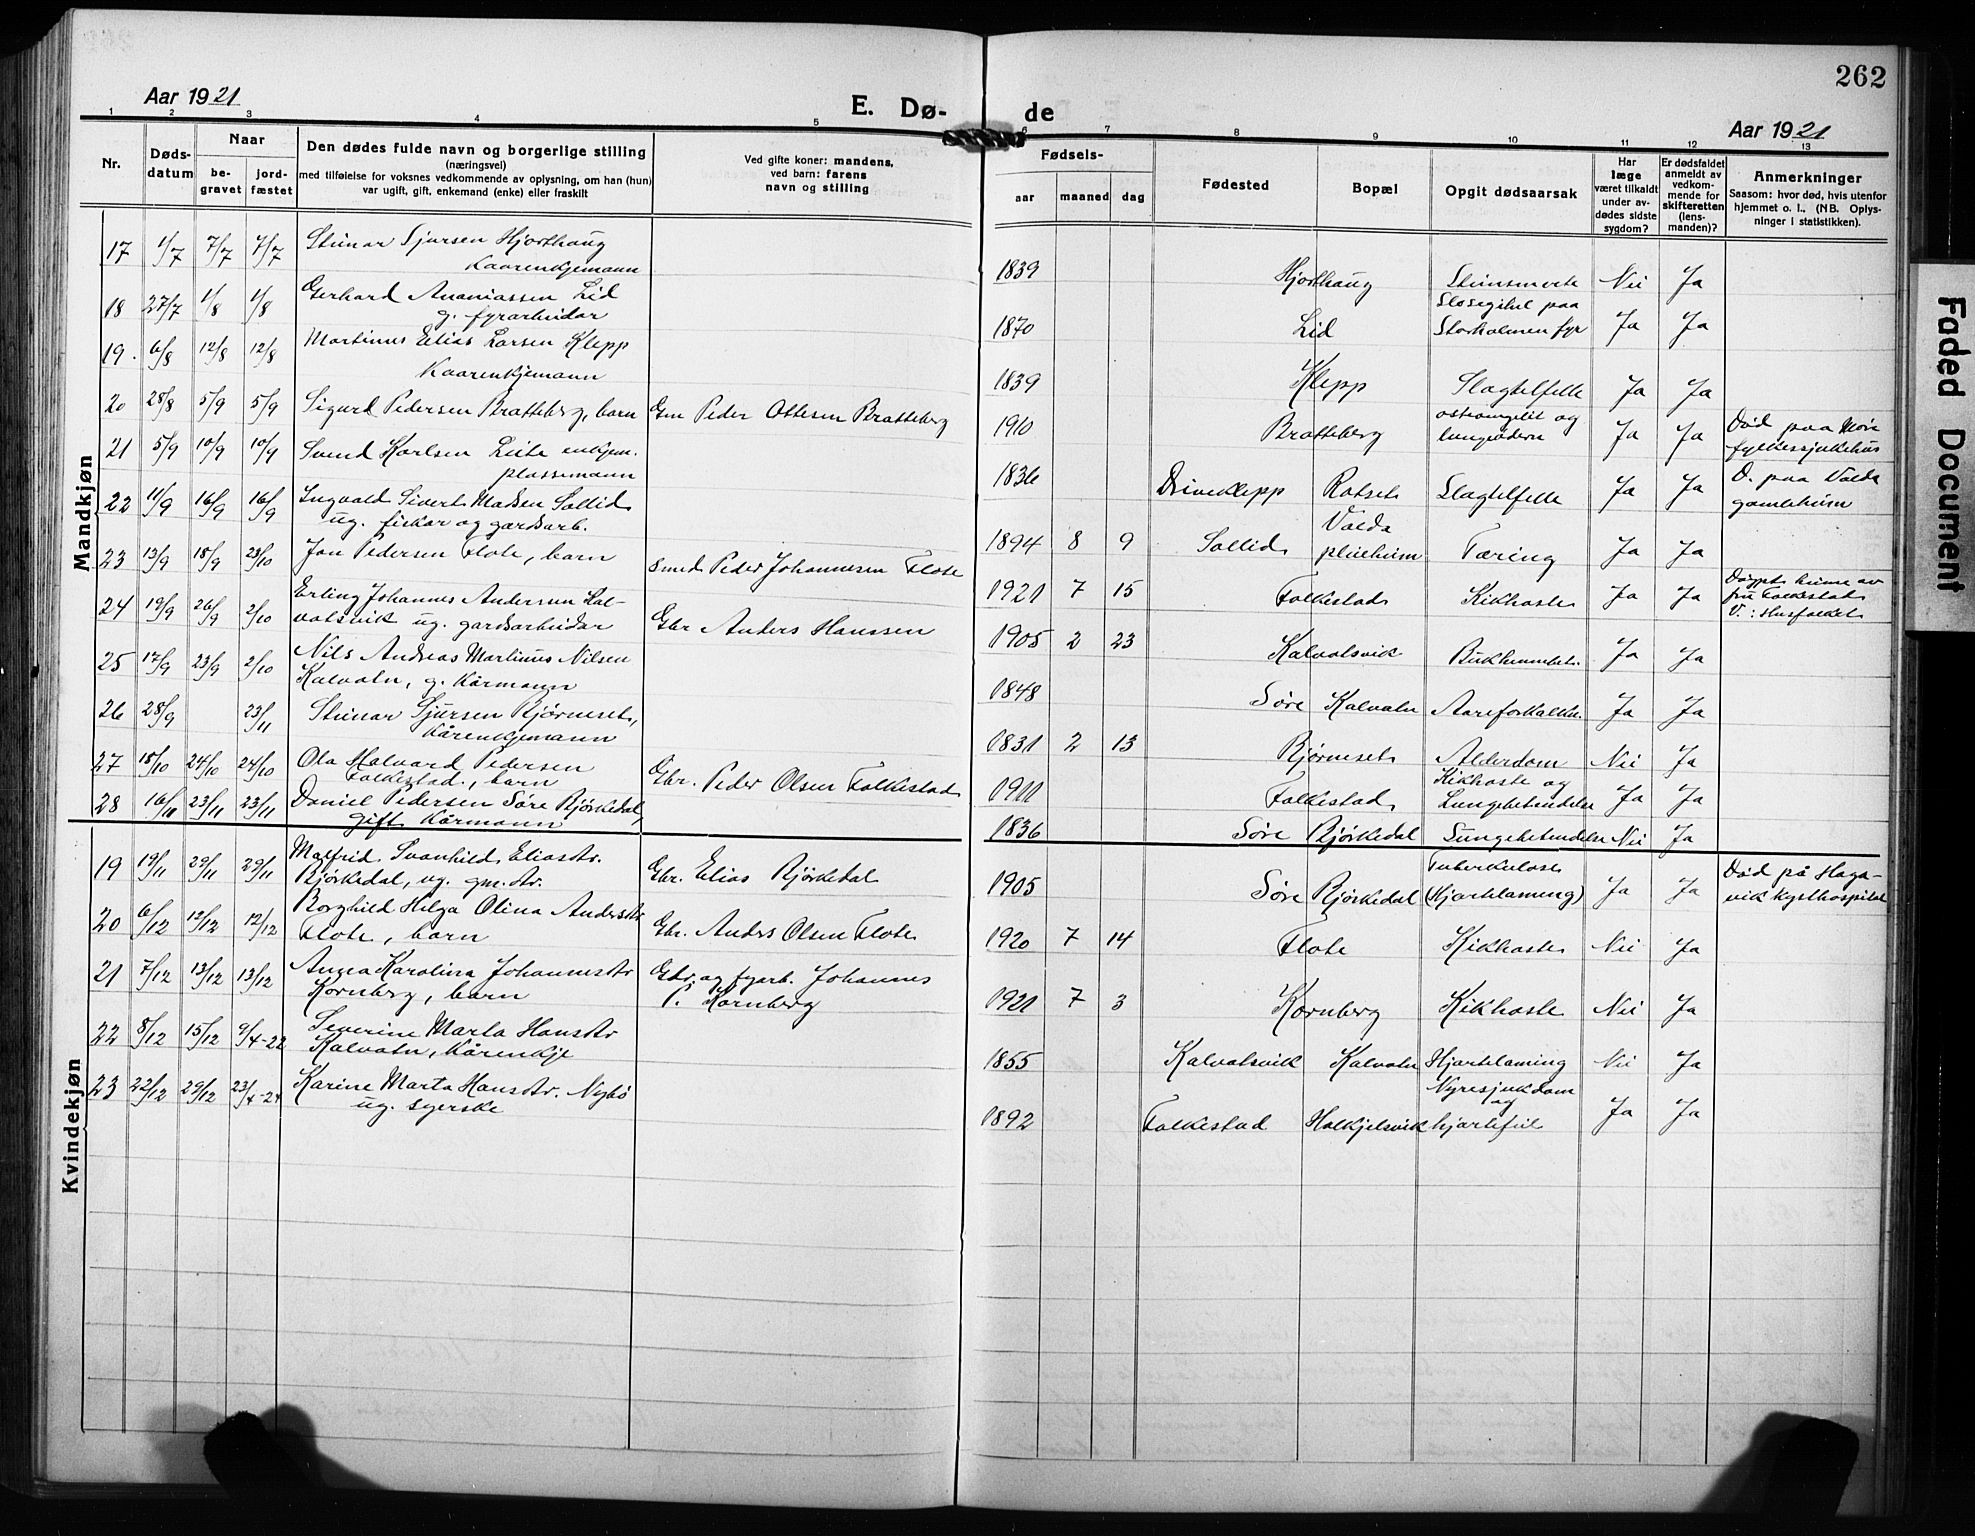 262
Aar 1921
E. Dø-
de
Aar 1921
1 2 3 4 5 6 7 8 9 10 11 12 13
Nr.
Døds-
datum
Naar
be-
gravet
jord-
fæstet
Den dødes fulde navn og borgerlige stilling
(næringsvei)
med tilføielse for voksnes vedkommende av oplysning, om han (hun)
var ugift, gift, enkemand (enke) eller fraskilt
Ved gifte koner: mandens,
ved barn: farens
navn og stilling
Fødsels-
aar maaned dag
Fødested
Bopæl
Opgit dødsaarsak
Har
læge
været tilkaldt
under av-
dødes sidste
sygdom?
Er dødsfaldet
anmeldt av
vedkom-
mende for
skifteretten
(lens-
manden)?
Anmerkninger
Saasom: hvor død, hvis utenfor
hjemmet o. l., (NB. Oplys-
ninger i statistikken).
Mandkjøn
17 1/7 7/7 7/7 Steinar Sjursen Hjorthaug
Kaarenkjemann
1839 Hjorthaug Nei Ja
18 27/7 1/8 1/8 Gerhard Ananiassen Lid
g. fyrarbeidar
1870 Lid Storholmen fyr Ja Ja
19. 6/8 12/8 12/8 Martinus Elias Larsen Klepp
Kaarenkjemann
1839 Klepp Slagtelfelle Ja Ja
20 28/8 5/9 5/9 Sigurd Pedersen Bratteberg, barn Gm Peder Ottesen Bratteberg
1910 Bratteberg og Ja Ja Død paa Møre
fylkessjukehus
21 5/9 10/9 10/9 Svend Karlsen Leite enkjem.
plassemann
1836 Driveklepp Rotset Slagtelfelle Ja Ja D. paa Volda
gamleheim
22 11/9 16/9 16/9 Ingvald Sivert Madsen Sollid
ug. fiskar og gardsarb.
1894 8 9 Sollid Volda
pleieheim Tæring Ja Ja
23 13/9 18/9 23/10 Jon Pedersen Flote, barn Smed Peder Johannesen Flote
1921 7 15 Folkestad Kikhoste Ja Ja Døypt heime av
frú Folkestad
V.: Husfolket
24 19/9 26/9 2/10 Erling Johannes Andersen Kal-
vatsvik ug. gardsarbeidar Gbr Anders Hanssen
1905 2 23 Kalvatsvik Ja Ja
25 17/9 23/9 2/10 Nils Andreas Martinus Nilsen
Kalvatn, g. kårmann
1848 Søre Kalvatn Aareforkalkn. Ja Ja
26 28/9 23/11 Steinar Sjursen Bjørneset,
Kårenkjemann
1831 2 13 Bjørneset Alderdom Nei Ja
27 18/10 24/10 24/10 Ola Halvard Pedersen
Folkestad, barn Gbr. Peder Olsen Folkestad
1911 Folkestad Kikhoste og
Lungebetendelse Ja Ja
28 16/11 23/11 23/11 Daniel Pedersen Søre Bjørkedal,
gift kårmann
1836 Søre Bjørkedal Lungebetendelse Nei Ja
Kvindekjøn
19 19/11 29/11 29/11 Malfrid Svanhild Eliasdtr.
Bjørkedal, ug. gm.dtr. Gbr. Elias Bjørkedal
1905 Søre Bjørkedal Tuberkulose
(Hjartelaming) Ja Ja Død på Haga-
vik kysthospital
20 6/12 12/12 12/12 Borghild Helga Olina Andersdtr
Flote, barn Gbr. Andrs Olsen Flote
1920 7 14 Flote Kikhoste Nei Ja
21 7/12 13/12 13/12 Angea Karolina Johannesdtr
Kornberg, barn Gbr. og fyrarb. Johannes
P. Kornberg
1921 7 3 Kornberg Kikhoste Nei Ja
22 8/12 15/12 9/4-22 Severine Marta Hansdtr
Kalvatn, Kårenkje
1855 Kalvatsvik Kalvatn Hjartelaming Nei Ja
23 22/12 29/12 23/4-24 Karine Marta Hansdtr. Nybø
ug. syerske
1892 Folkestad Halkjelsvik Nyresjukdom
og
hjartefeil Ja Ja
Faded Document